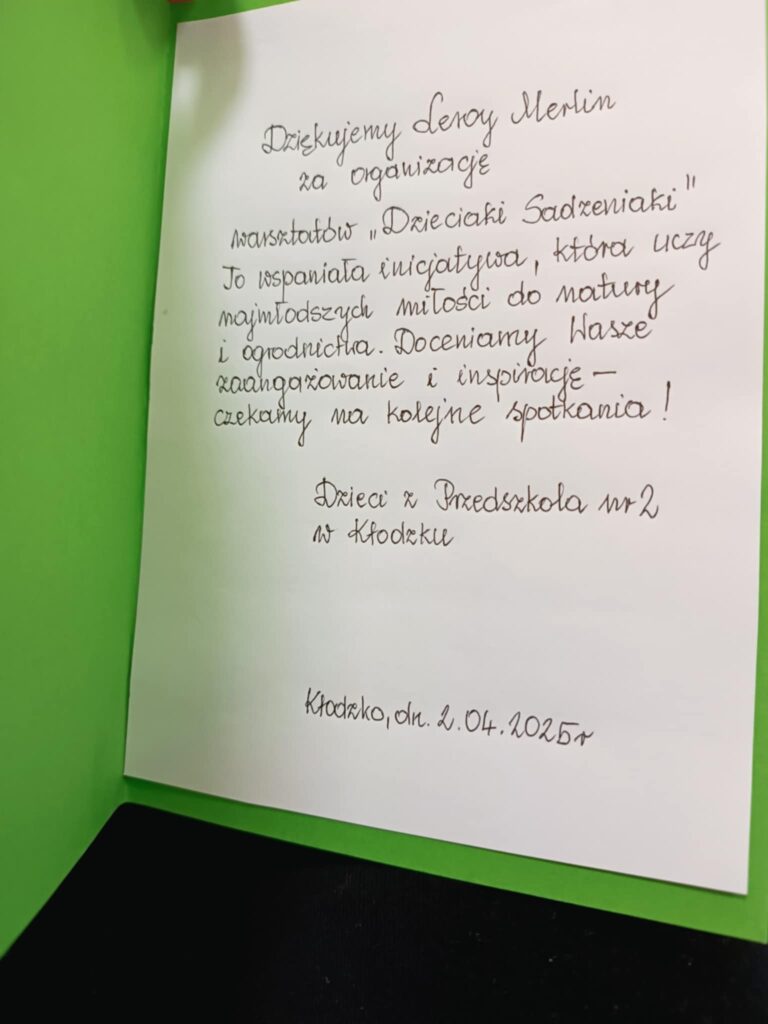 Dziękujemy Leroy Merlin
za organizację
warsztatów „Dzieciaki Sadzeniaki"
To wspaniała inicjatywa, która uczy
najmłodszych miłości do natury
i ogrodnictwa. Doceniamy Wasze
zaangażowanie i inspirację –
czekamy na kolejne spotkania!
Dzieci z Przedszkola nr 2
w Kłodzku
Kłodzko, dn. 2.04.2025r